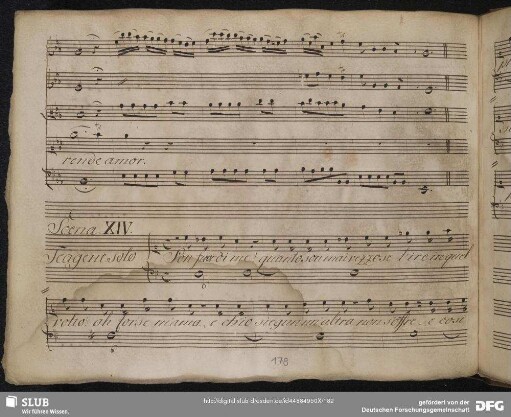 rende amor.
Scena XIV.
Teagene solo
Son pur di me quanto son mai vezzose l'ire in quel
volto, oh forse m'ama, e ch'io siegua un'altra non soffre, e così
178
SLUB
Wir führen Wissen.
http://digital.slub-dresden.de/id448849607/182
gefördert von der
Deutschen Forschungsgemeinschaft
DFG